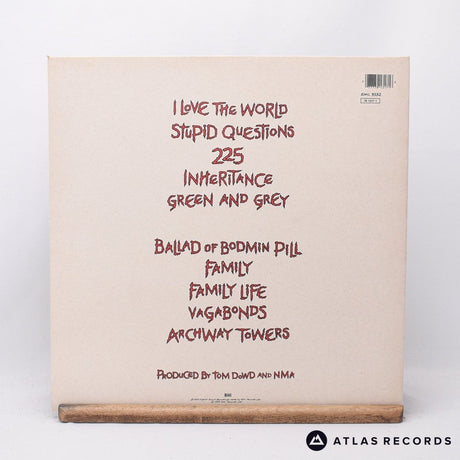 I LOVE THE WORLD
STUPID QUESTIONS
225
INHERITANCE
GREEN AND GREY
BALLAD OF BODMIN PILL
FAMILY
FAMILY LIFE
VAGABONDS
ARCHWAY TOWERS
PRODUCED BY TOM DOWD AND NMA
EMI
ATLAS RECORDS